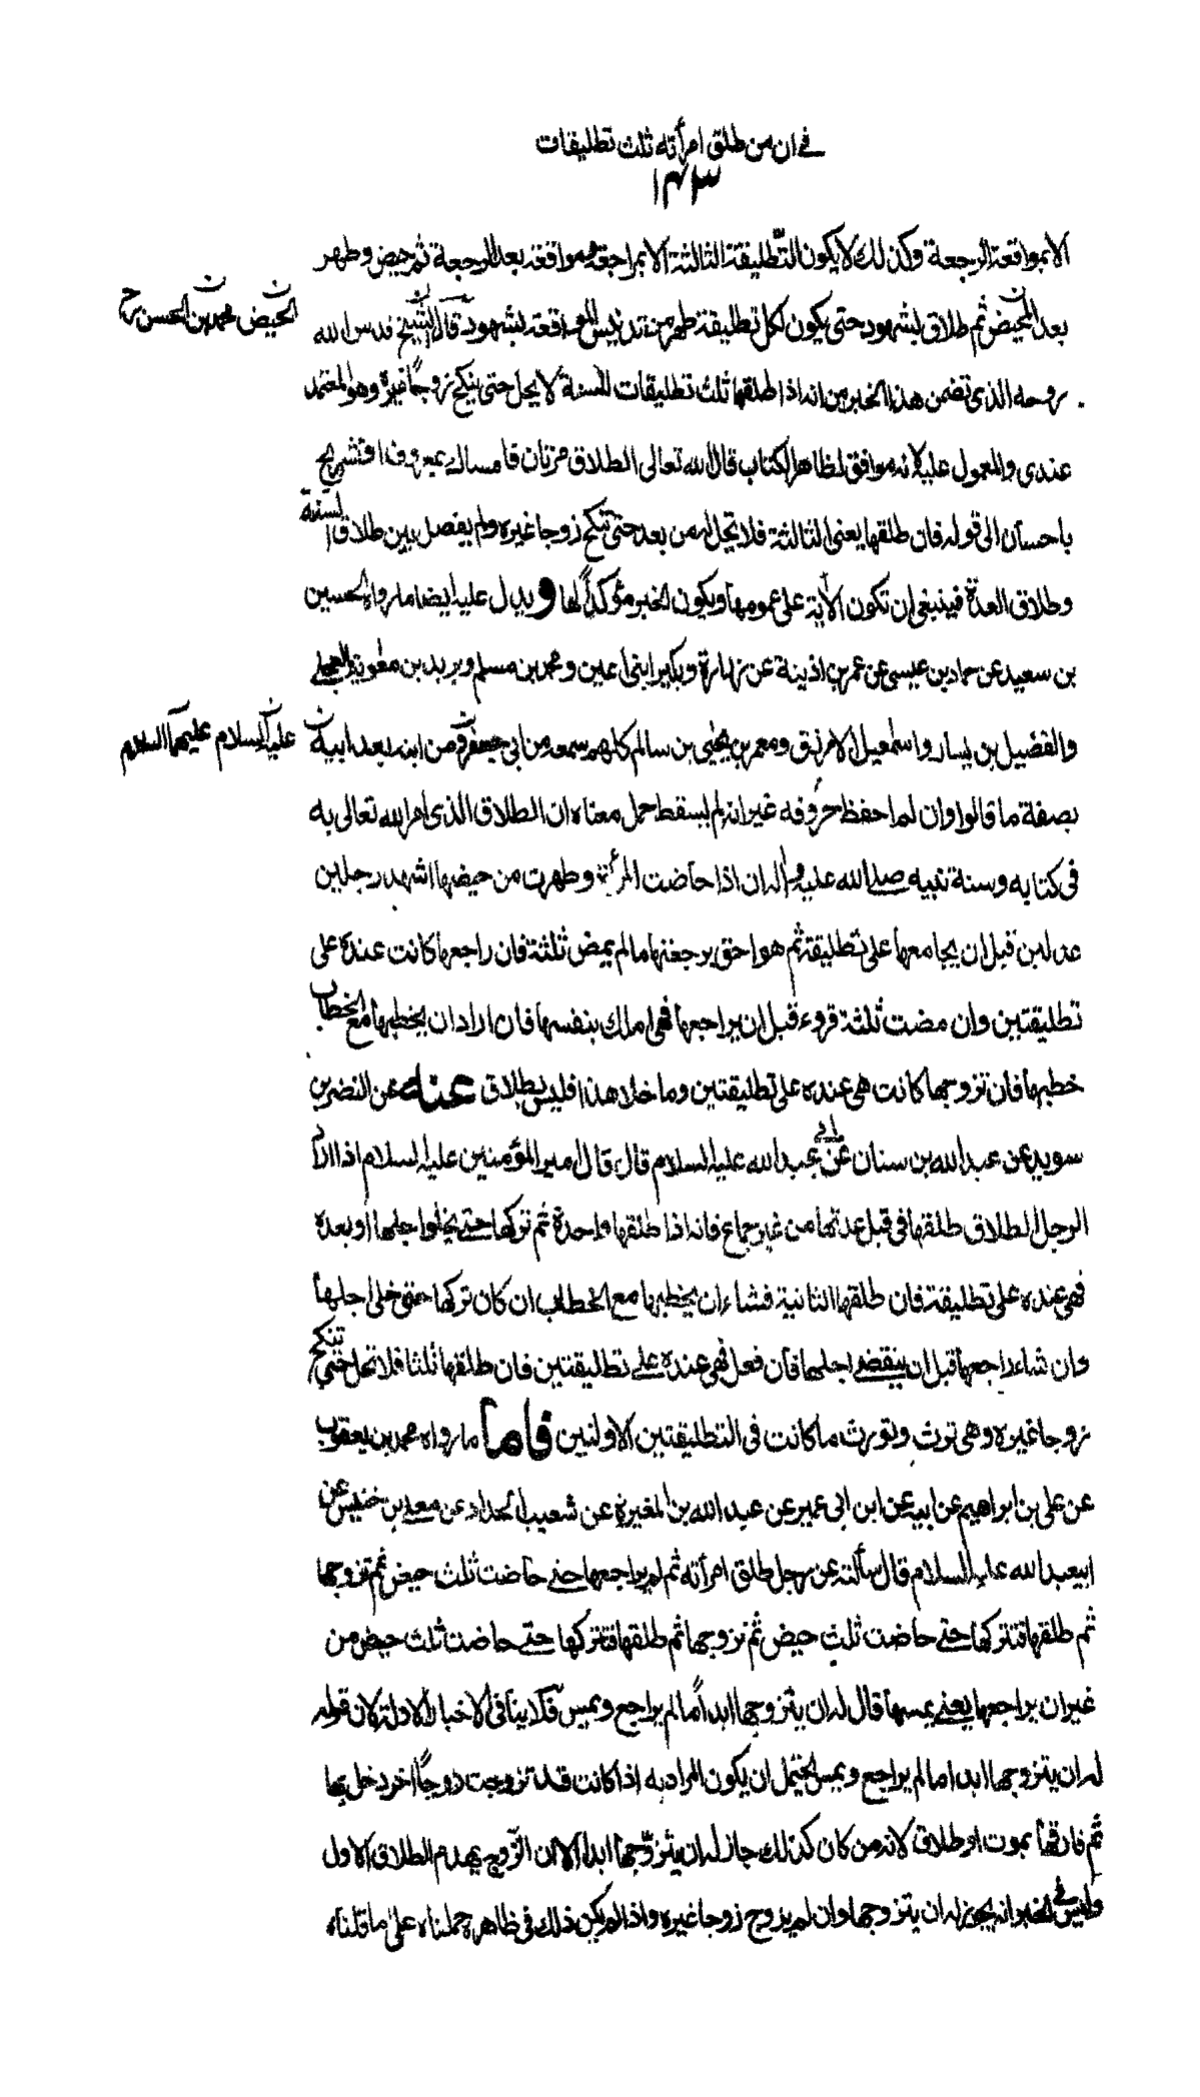 في ان من طلق امرأته ثلث تطليقات
١٤٣
الا بمواقعة الرجعة وكذلك لا يكون التطليقة الثالثة الا بمراجعة ومواقعة بعد الرجعة ثم حيض وطهر
بعد الحيض ثم طلاق بشهود حتى يكون لكل تطليقة طهر من تدنيس المواقعة بشهود قال الشيخ قدس الله
المحيض محمد بن الحسن رح
روحه الذى تضمن هذا الخبر من انه اذا طلقها ثلث تطليقات للسنة لا يحل حتى ينكح زوجا غيره وهو المعتمد
عندى والمعمول عليه لانه موافق لظاهر الكتاب قال الله تعالى الطلاق مرتان فامساك بمعروف او تسريح
باحسان الى قوله فان طلقها يعنى الثالثة فلا تحل له من بعد حتى تنكح زوجا غيره ولم يفصل بين طلاق السنة
وطلاق العدة فينبغي ان تكون الاية على عمومها ويكون الخبر مؤكدا لها ويدل عليه ايضا ما رواه الحسين
بن سعيد عن حماد بن عيسى عن عمر بن اذينة عن زرارة وبكير ابنى اعين ومحمد بن مسلم وبريد بن معوية العجلي
والفضيل بن يسار واسمعيل الازرق ومعمر بن يحيى بن سالم كلهم سمعه من ابي جعفر ومن ابنه بعد ابيه
عليه السلام عليهما السلام
بصفة ما قالوا وان لم احفظ حروفه غير انه لم يسقط حمل معناه ان الطلاق الذى امر الله تعالى به
فى كتابه وسنة نبيه صلى الله عليه واله ان اذا حاضت المرأة وطهرت من حيضها اشهد رجلين
عدلين قبل ان يجامعها على تطليقة ثم هو احق برجعتها ما لم يمض ثلثة فان راجعها كانت عنده على
تطليقتين وان مضت ثلثة قروء قبل ان يراجعها فهى املك بنفسها فان اراد ان يخطبها مع الخطاب
خطبها فان تزوجها كانت هى عنده على تطليقتين وما خلا هذا فليس بطلاق عنه عن النضر بن
سويد عن عبد الله بن سنان عن ابي عبد الله عليه السلام قال قال امير المؤمنين عليه السلام اذا اراد
الرجل الطلاق طلقها فى قبل عدتها من غير جماع فانه اذا طلقها واحدة ثم تركها حتى يخلوا اجلها او بعده
فهى عنده على تطليقة فان طلقها الثانية فشاء ان يخطبها مع الخطاب ان كان تركها حتى خلى اجلها
وان شاء راجعها قبل ان ينقضى اجلها فان فعل فهى عنده على تطليقتين فان طلقها ثلثا فلا تحل حتى تنكح
زوجا غيره وهى ترث وتورث ما كانت فى التطليقتين الاولتين فاما ما رواه محمد بن يعقوب
عن على بن ابراهيم عن ابيه عن ابن ابى عمير عن عبد الله بن المغيرة عن شعيب الحداد عن معلى بن خنيس عن
ابيعبد الله عليه السلام قال سألته عن رجل طلق امرأته ثم لم يراجعها حتى حاضت ثلث حيض ثم تزوجها
ثم طلقها فتركها حتى حاضت ثلث حيض ثم تزوجها ثم طلقها فتركها حتى حاضت ثلث حيض من
غير ان يراجعها يعنى يمسها قال له ان يتزوجها ابدا ما لم يراجع ويمس فلا ينافى الاخبار الاولة لان قوله
له ان يتزوجها ابدا ما لم يراجع ويمس يحتمل ان يكون المراد به اذا كانت قد تزوجت زوجا اخر دخل بها
ثم فارقها بموت او طلاق لانه من كان كذلك جاز له ان يتزوجها ابدا الا ان الزوج يهدم الطلاق الاول
وليس فى الخبر انه يجوز له ان يتزوجها وان لم يزوج زوجا غيره واذا لم يكن ذلك فى ظاهره حملناه على ما قلناه